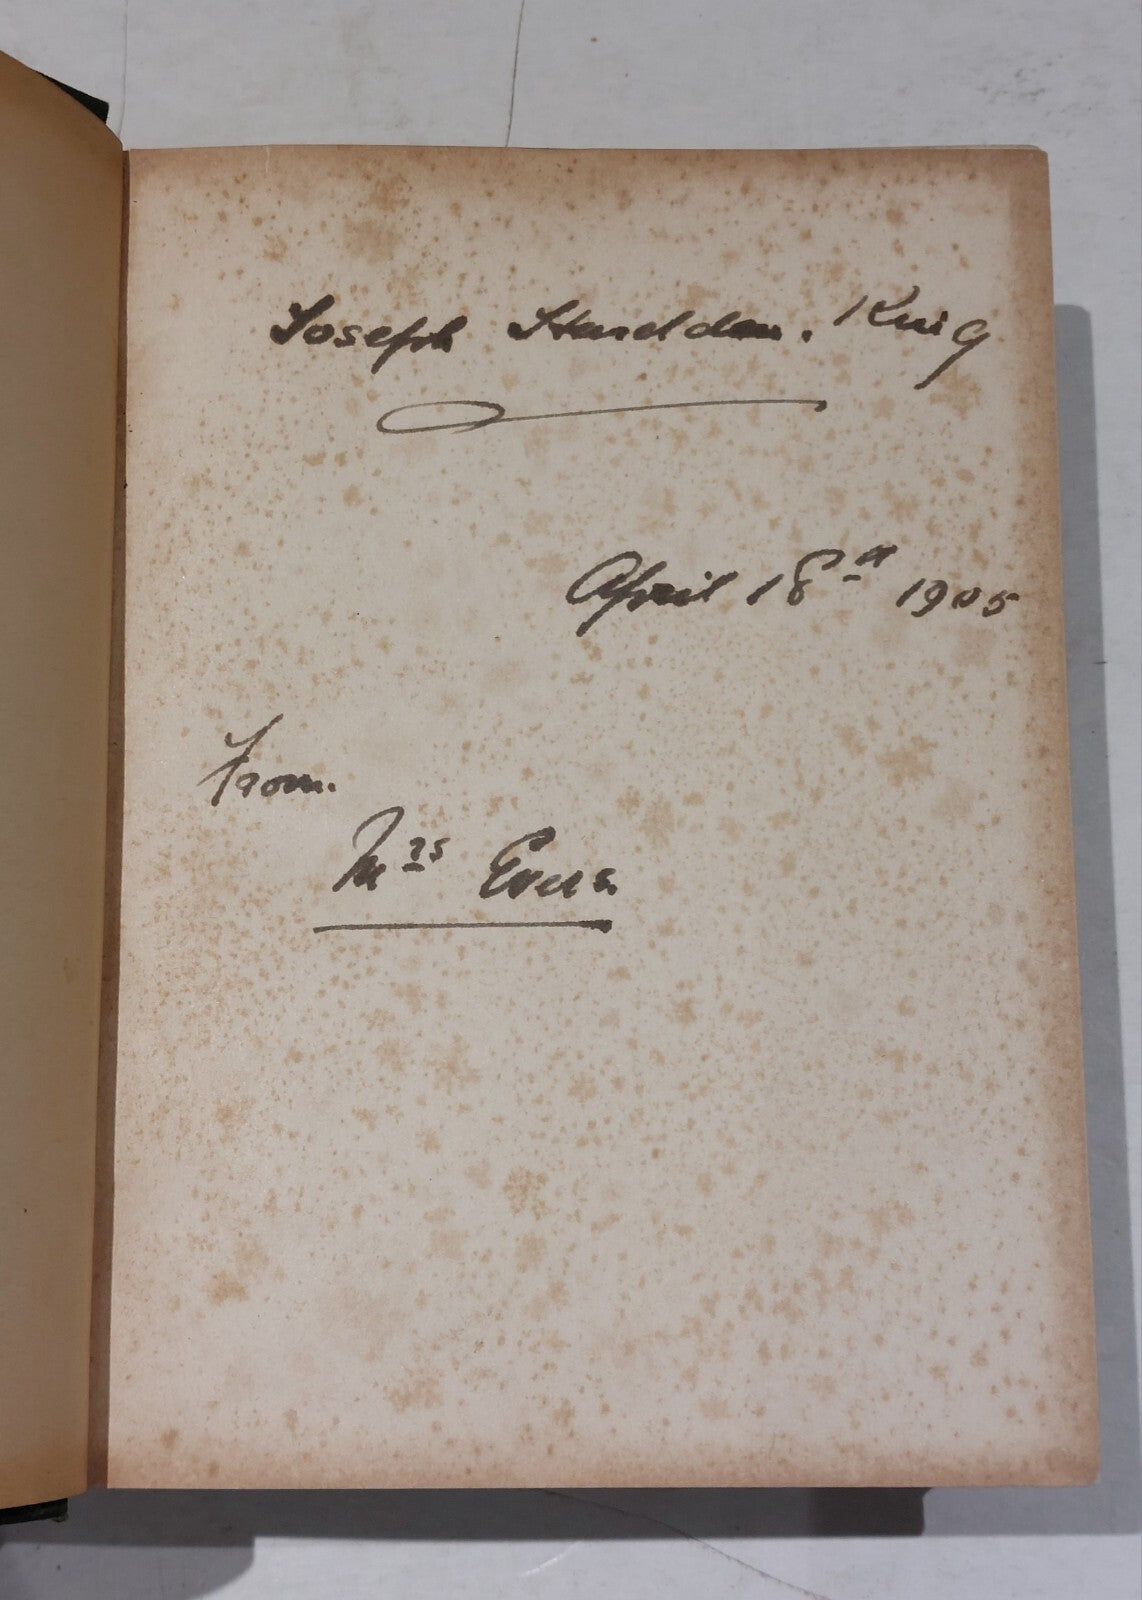 Joseph Hadden. King
April 18th 1905
From.
Mrs Evers.